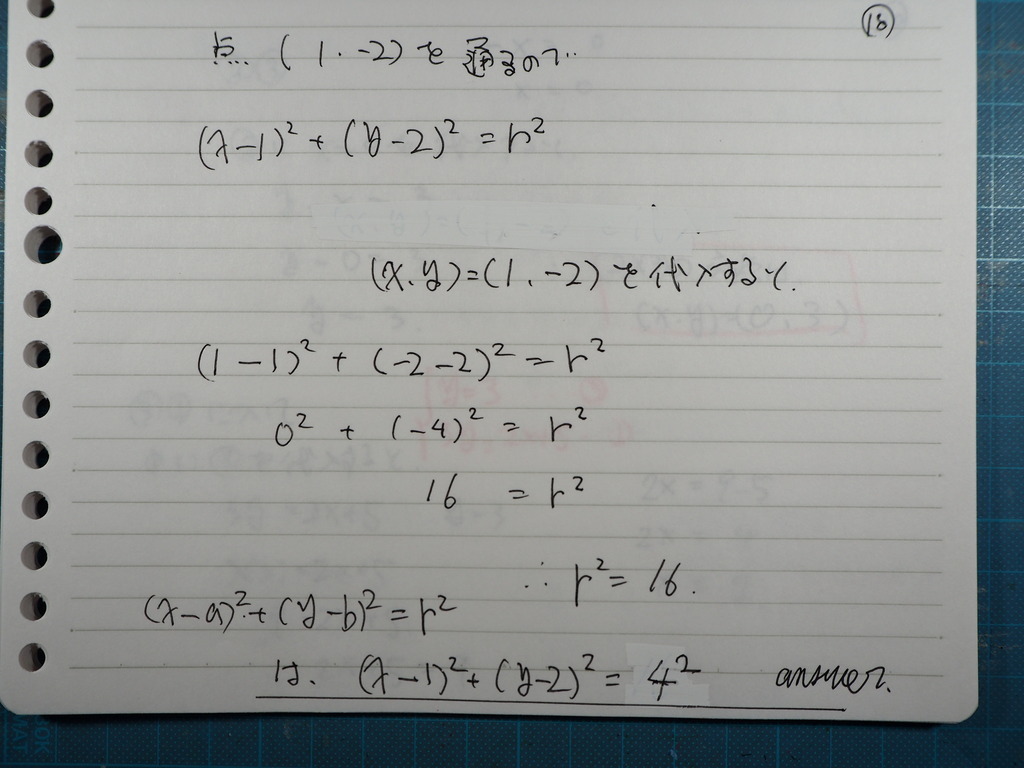 ⑱
点 (1, -2) を 通るので…
(x-1)² + (y-2)² = r²
(x, y) = (1, -2) を代入すると、
(1-1)² + (-2-2)² = r²
0² + (-4)² = r²
16 = r²
∴ r² = 16.
(x-a)² + (y-b)² = r²
は、 (x-1)² + (y-2)² = 4² answer.